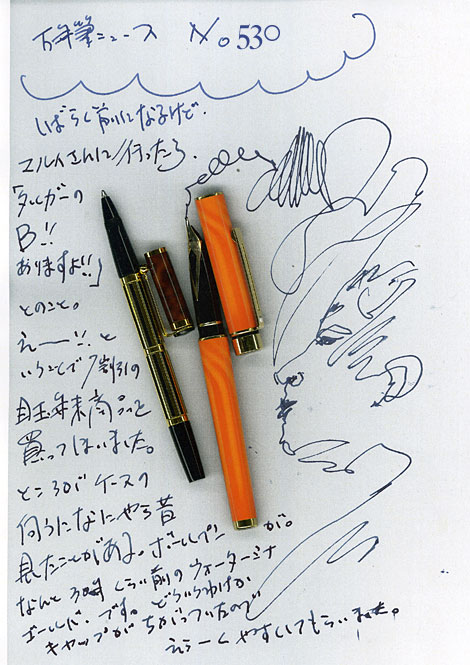 万年筆ニュース No530
しばらく前になるけど.
マルイさんに行ったら
「タルガーの
B!!
ありますよ!!」
とのこと。
えー!!と
いうことで7割引の
目玉年末商品を
買ってしまいました。
ところがケースの
何うになにやら昔
見たことがある。ボールペンが。
なんと くらい前のウォーターマン
ゴールド.です。どういうわけか
キャップがちがっていたので
えらーくやすいしてもらいました。